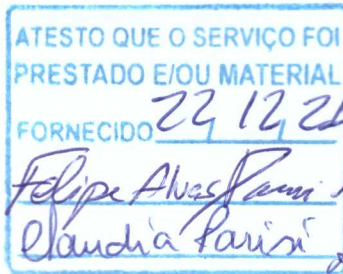 ATESTO QUE O SERVIÇO FOI
PRESTADO E/OU MATERIAL
FORNECIDO 22, 12, 21
Felipe Alves
Claudia Parisi